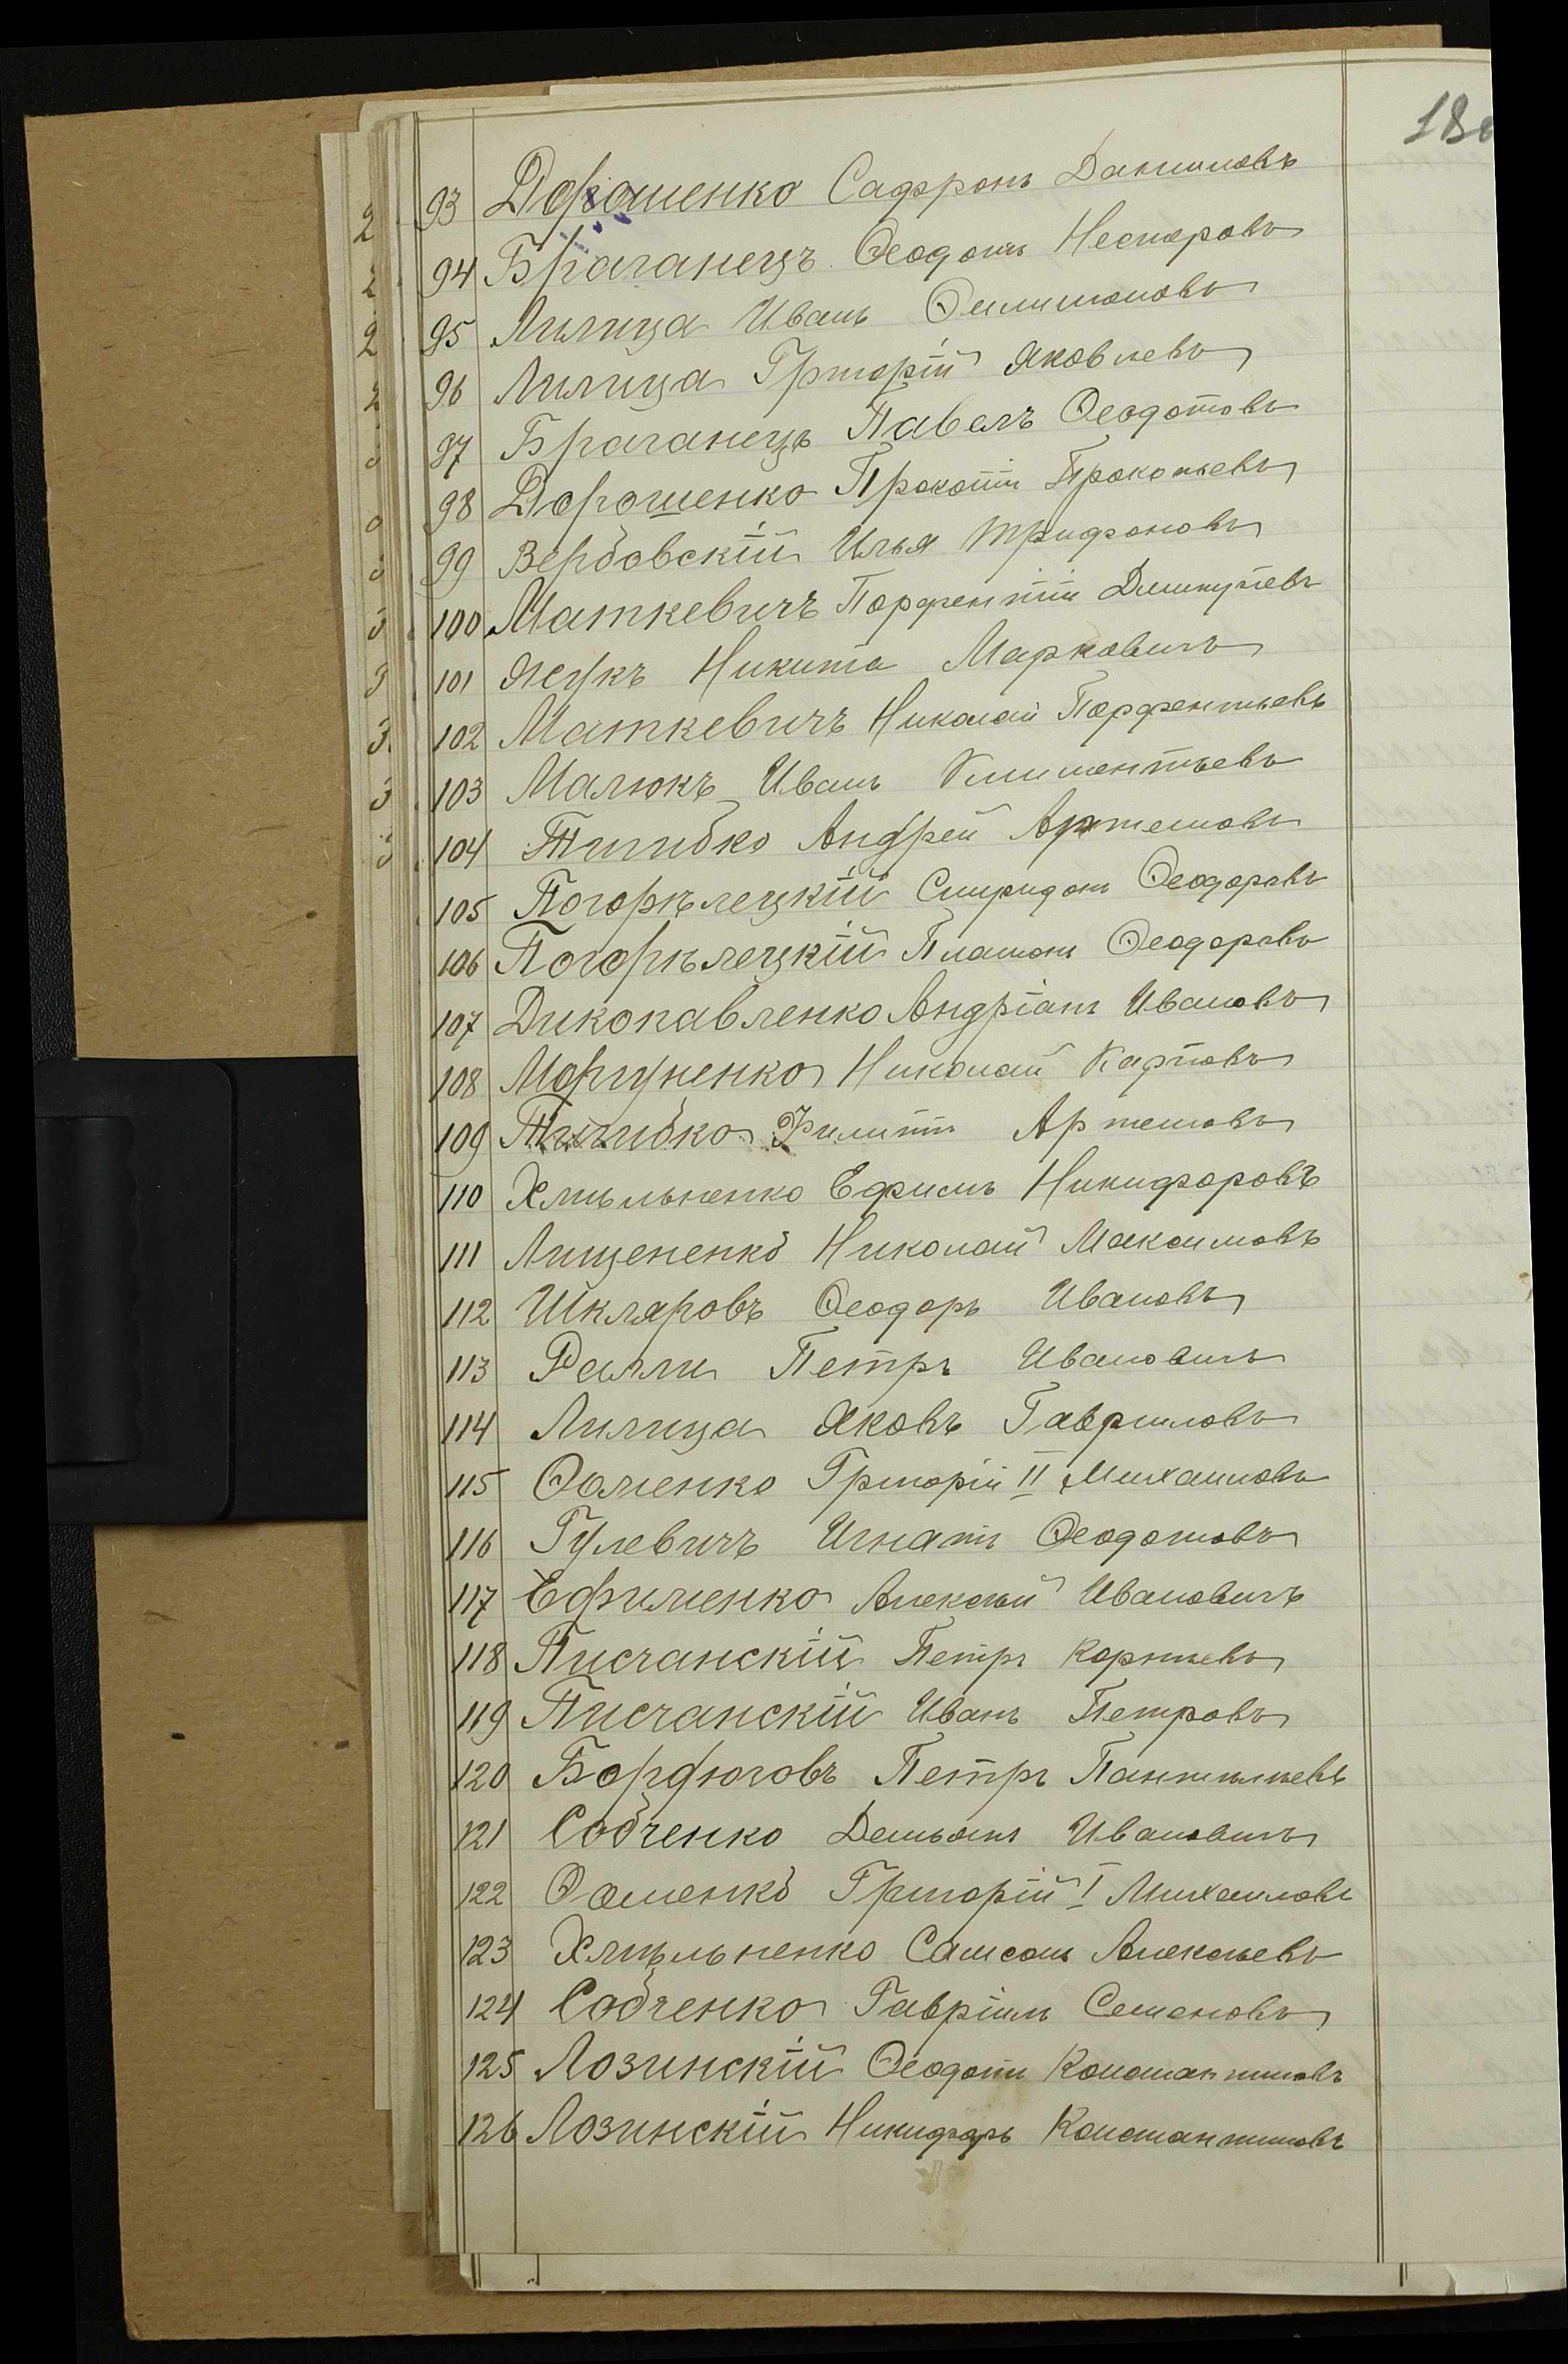 93 Дорошенко Сафронъ Даниловъ
94 Браганецъ Ѳеодотъ Нестеровъ
95 Лилица Иванъ Филимоновъ
96 Лилица Григорій Яковлевъ
97 Браганецъ Павелъ Ѳеодотовъ
98 Дорошенко Прокопій Прокопьевъ
99 Вербовскій Илья Трифоновъ
100 Маткевичъ Парфентій
101 Ясукъ Никита Марковичъ
102 Маткевичъ Николай Парфентьевъ
103 Малюкъ Иванъ Климентьевъ
104 Тигибко Андрей Артемовъ
105 Погорѣлецкій Спиридонъ Ѳеодоровъ
106 Погорѣлецкій Платонъ Ѳеодоровъ
107 Дикопавленко Андріанъ Ивановъ
108 Моргуненко Николай Карповъ
109 Тигибко Филиппъ Артемовъ
110 Хмѣльненко Ефимъ Никифоровъ
111 Лищененко Николай Максимовъ
112 Шкляровъ Ѳеодоръ Ивановъ
113 Ралли Петръ Ивановичъ
114 Лилица Яковъ Гавриловъ
115 Григорій II Михаиловъ
116 Гулевичъ Игнатъ Ѳеодотовъ
117 Ефименко Алексѣй Ивановичъ
118 Писчанскій Петръ Корнѣевъ
119 Писчанскій Иванъ Петровъ
120 Бордюговъ Петръ Пантелѣевъ
121 Собченко Демьянъ Ивановичъ
122 Григорій I Михаиловъ
123 Хмѣльненко Самсонъ Алексѣевъ
124 Собченко Гавріилъ Семеновъ
125 Лозинскій Ѳеодотъ Константиновъ
126 Лозинскій Никифоръ Константиновъ